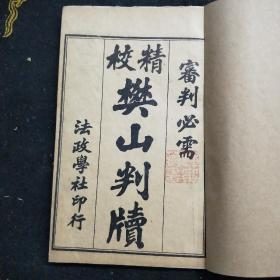 審判必需
精校
樊山判牘
法政學社印行